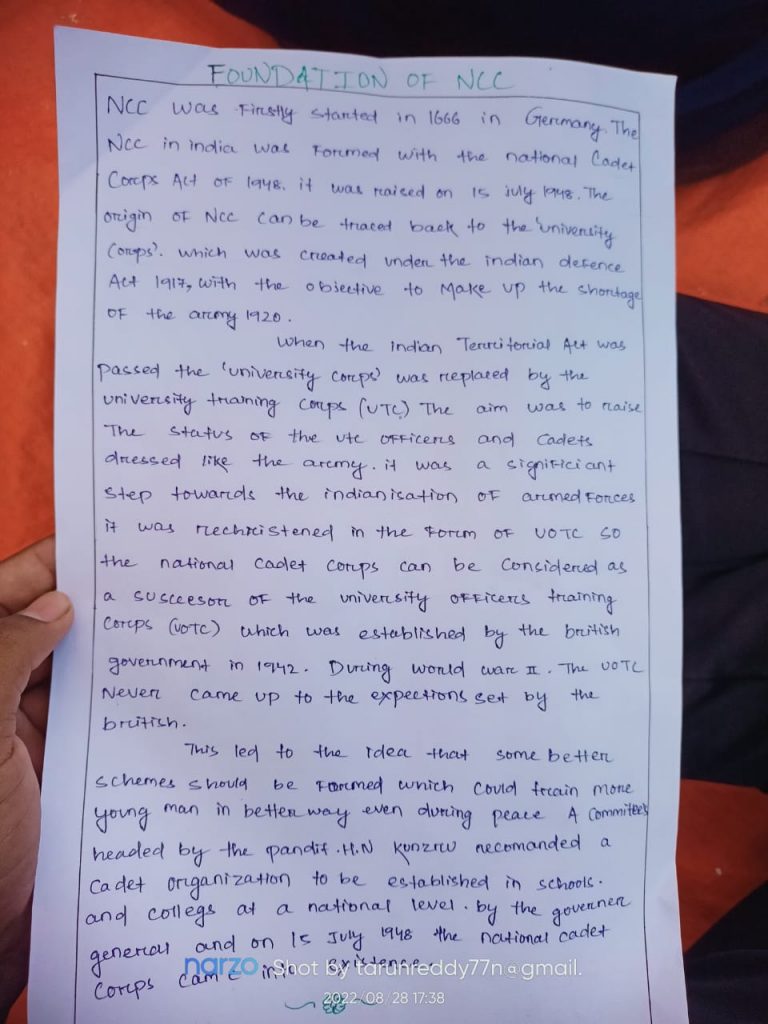 FOUNDATION OF NCC
NCC was Firstly started in 1666 in Germany. The
NCC in india was Formed with the national Cadet
Corps Act of 1948. it was raised on 15 july 1948. The
origin of NCC can be traced back to the 'university
Corps'. which was created under the indian defence
Act 1917, with the objective to Make up the shortage
OF the army 1920.
When the indian Territorial Act was
passed the 'university corps' was replaced by the
university training corps (UTC) The aim was to raise
The status of the utc officers and cadets
dressed like the army. it was a significiant
step towards the indianisation of armed Forces
it was rechristened in the Form of UOTC so
the national cadet corps can be considered as
a succesor of the university officers training
Corps (UOTC) which was established by the british
government in 1942. During world war II. The UOTC
Never came up to the expections set by the
british.
This led to the idea that some better
schemes should be Formed which could train more
young man in better way even during peace A Committees
headed by the pandit .H.N Kunzru recomanded a
cadet organization to be established in schools.
and collegs at a national level. by the governer
general and on 15 July 1948 the national cadet
Corps came into existence.
narzo Shot by tarunreddy77n@gmail.
2022/08/28 17:38